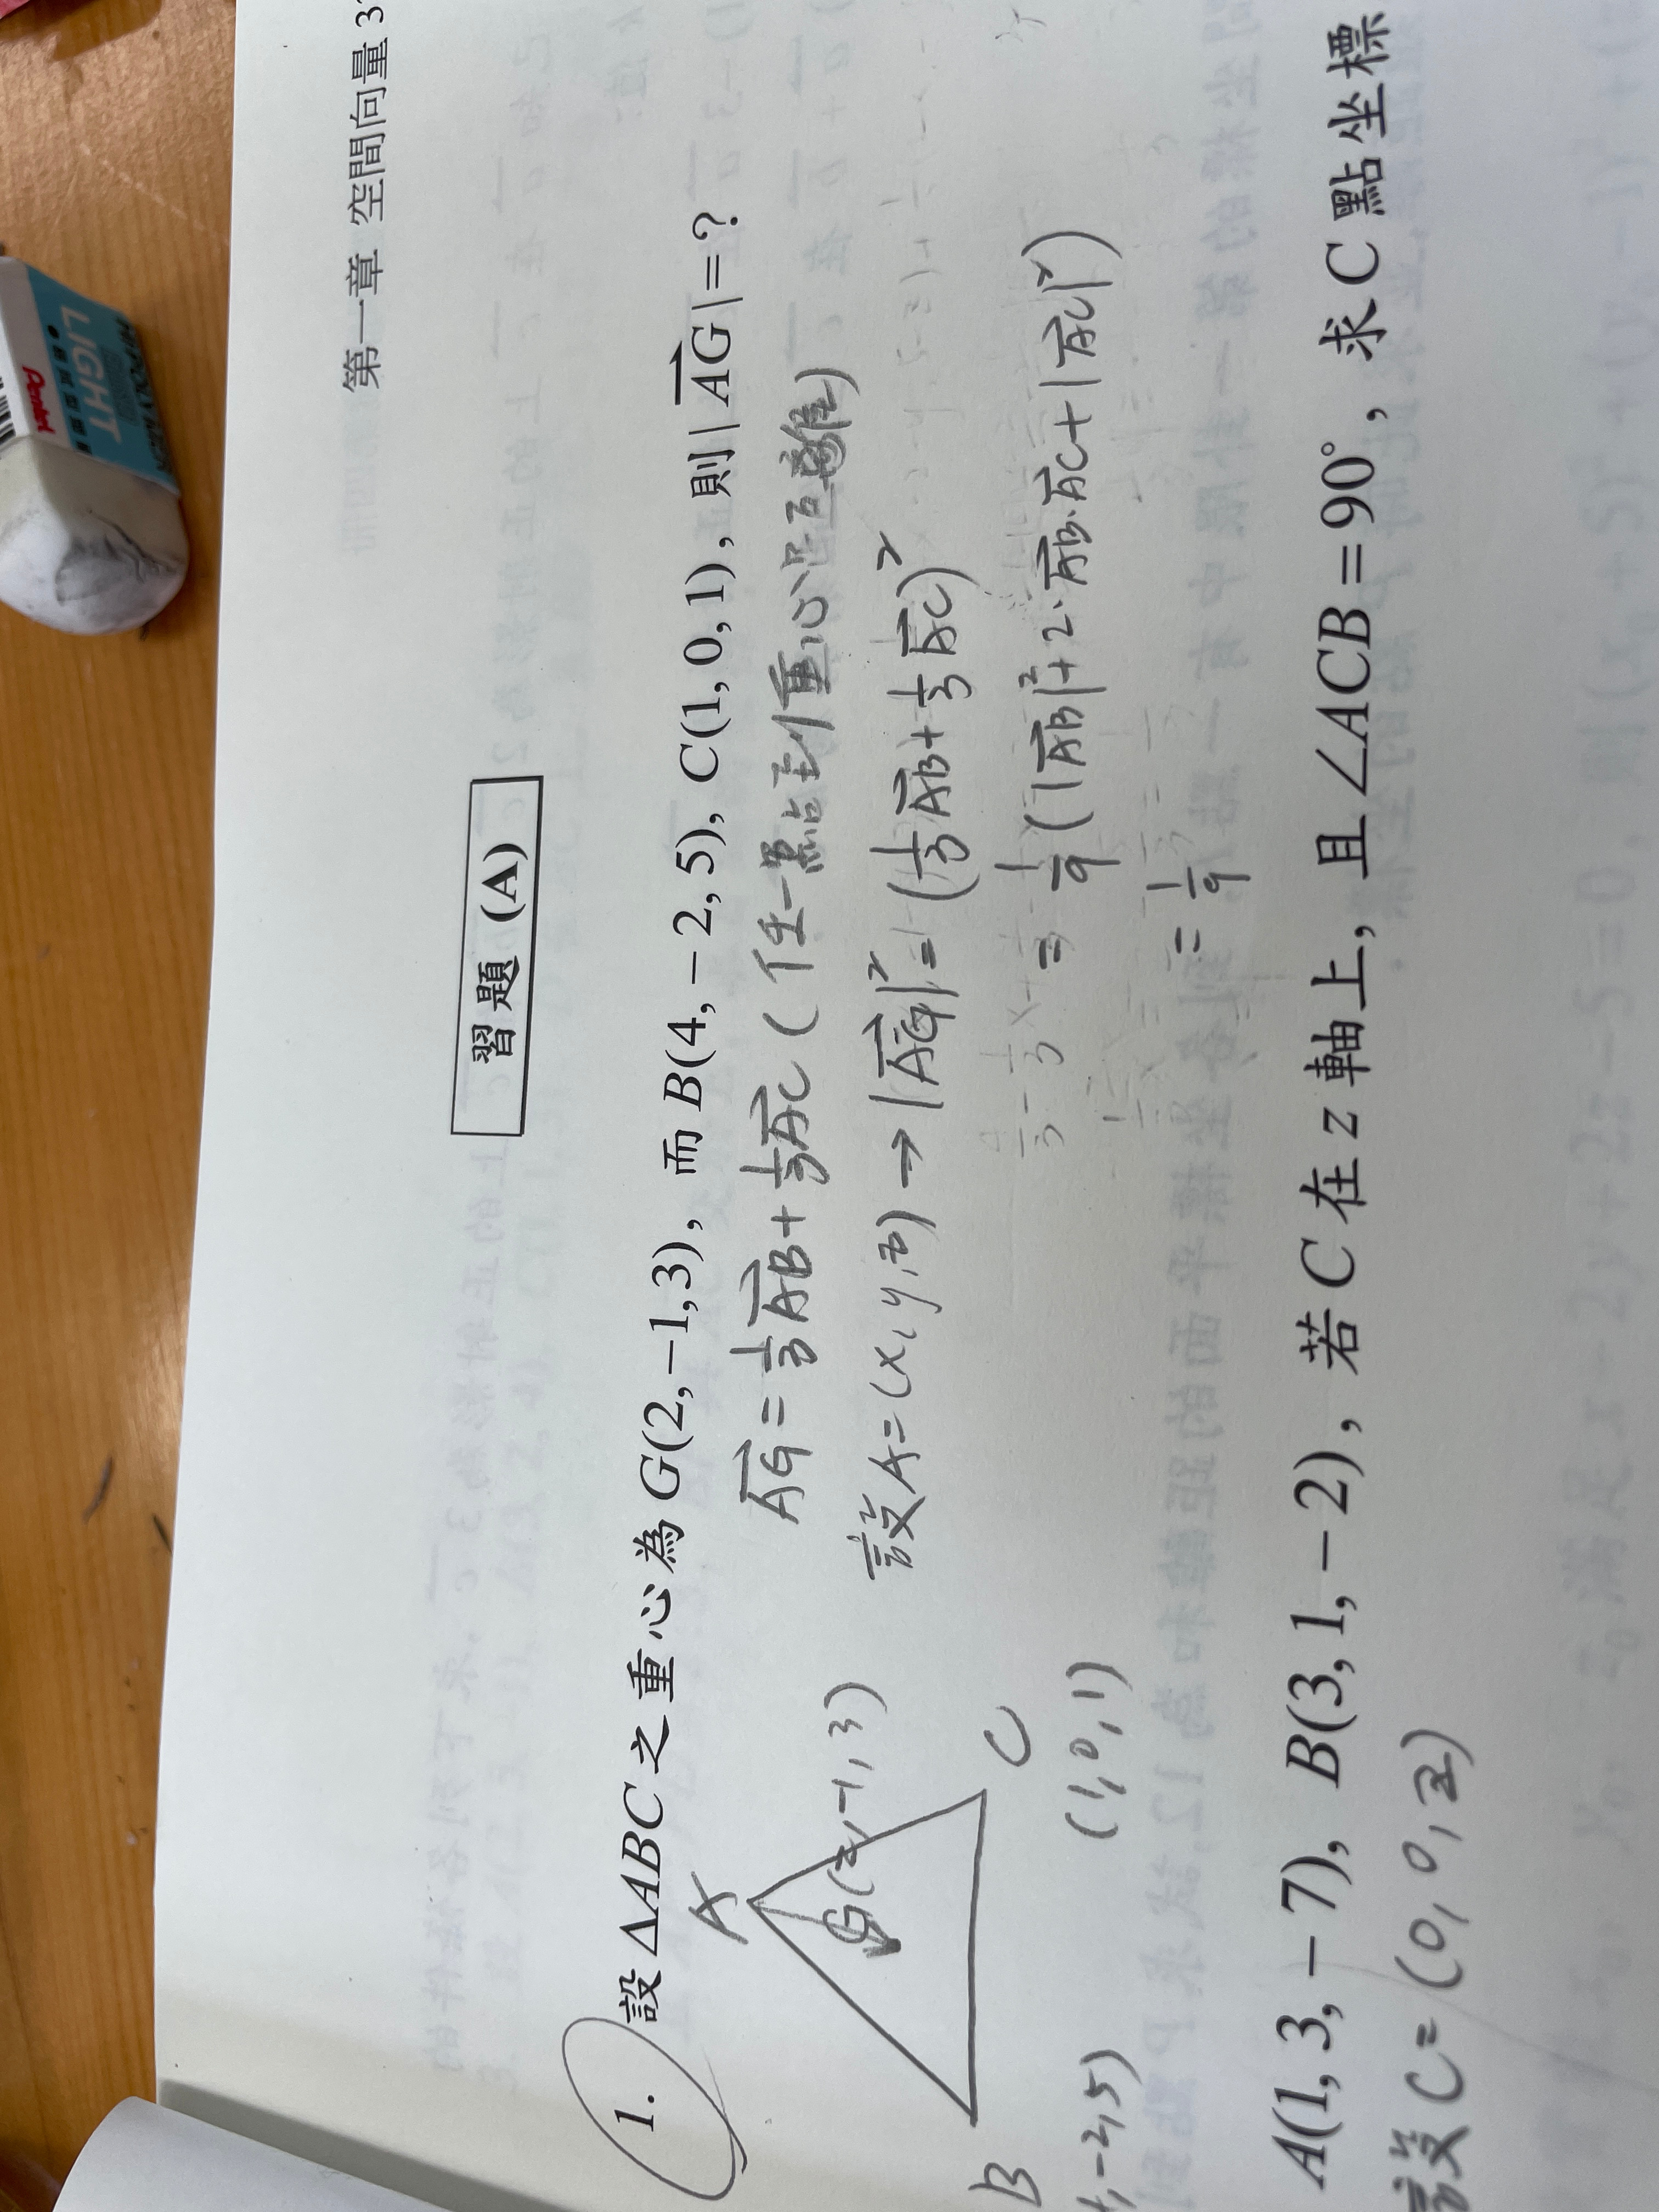 第一章 空間向量 3
習題 (A)
1. 設 ΔABC 之重心為 G(2,−1,3), 而 B(4,−2,5), C(1,0,1), 則 |AG⃗|=?
AG⃗ = 1/3 AB⃗ + 1/3 AC⃗ (任一點到重心距離)
設A=(x,y,z) → |AG⃗|² = (1/3 AB⃗ + 1/3 AC⃗)²
= 1/9 (|AB⃗|² + 2·AB⃗·AC⃗ + |AC⃗|²)
= 1/9
A
G(2,−1,3)
B
C
,−2,5)
(1,0,1)
A(1,3,−7), B(3,1,−2), 若 C 在 z 軸上, 且 ∠ACB=90°, 求 C 點坐標
設 C=(0,0,z)
Pentel
LIGHT
HI-POLYMER